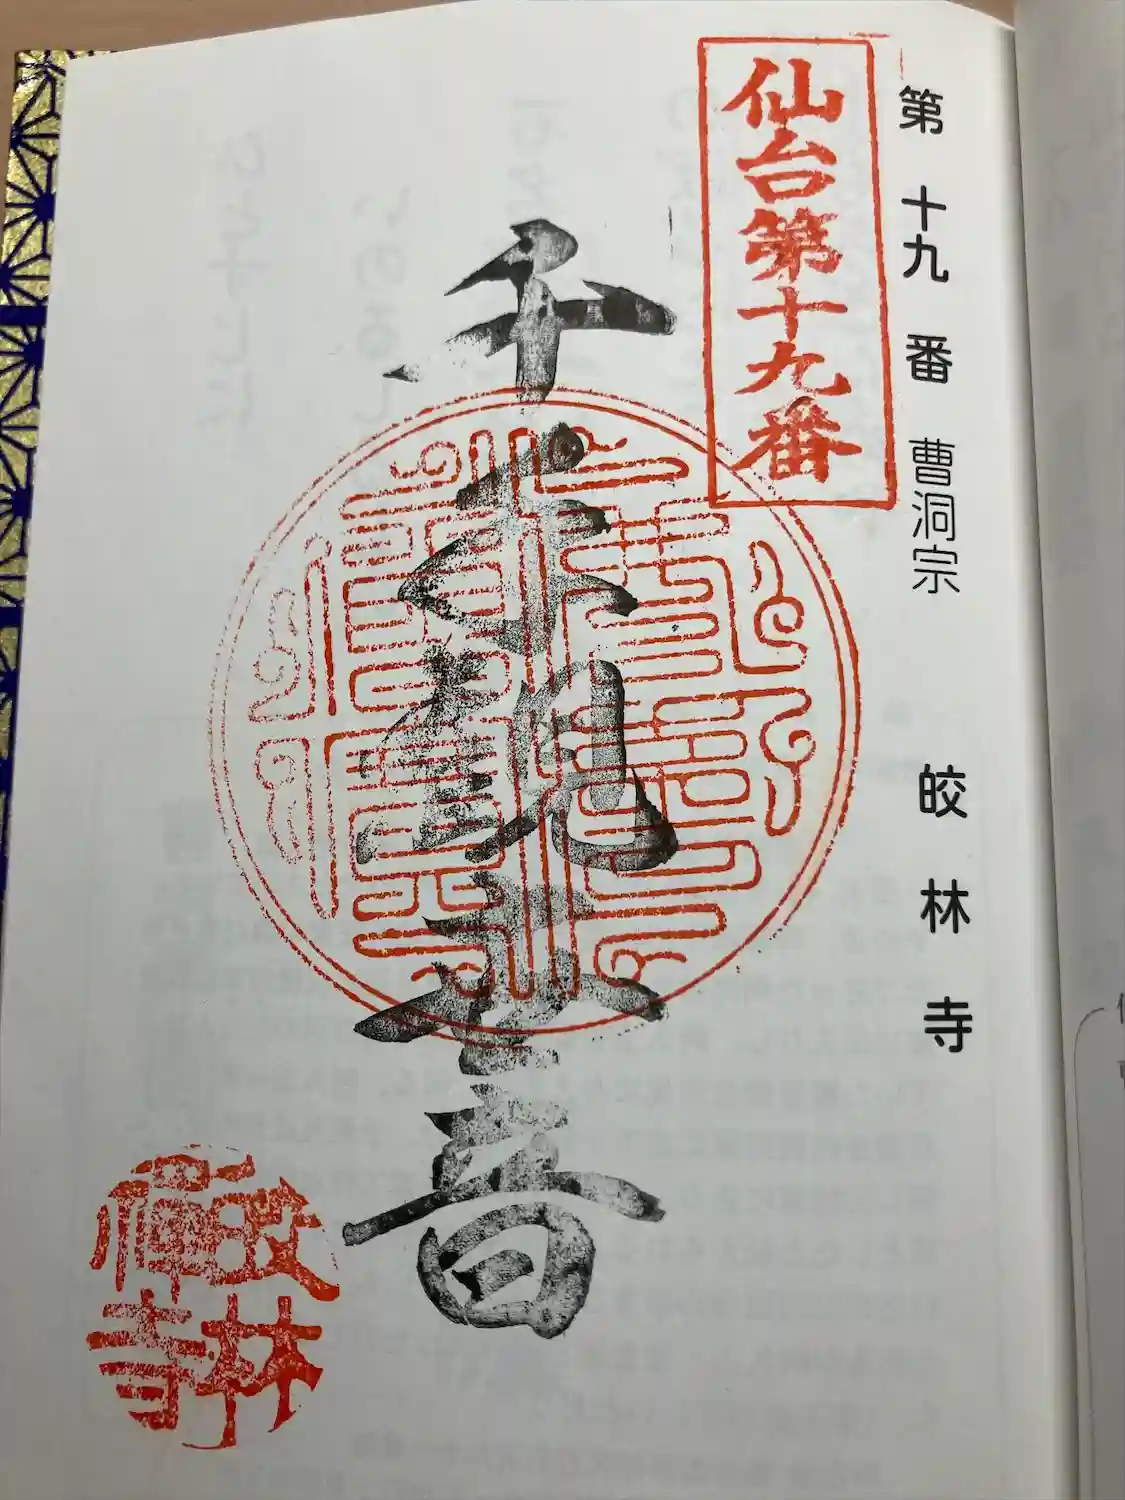 第十九番 曹洞宗 皎林寺
仙台第十九番
千手観世音
皎林
禅寺